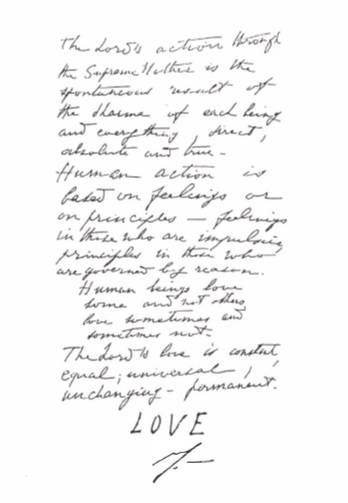 The Lord's action through
the Supreme Mother is the
spontaneous result of
the dharma of each being
and everything, direct,
absolute and true -
Human action is
based on feelings or
on principles - feelings
in those who are impulsive
principles in those who
are governed by reason.
Human beings love
some and not others
love sometimes and
sometimes not.
The Lord's love is constant,
equal, universal,
unchanging - permanent.
LOVE